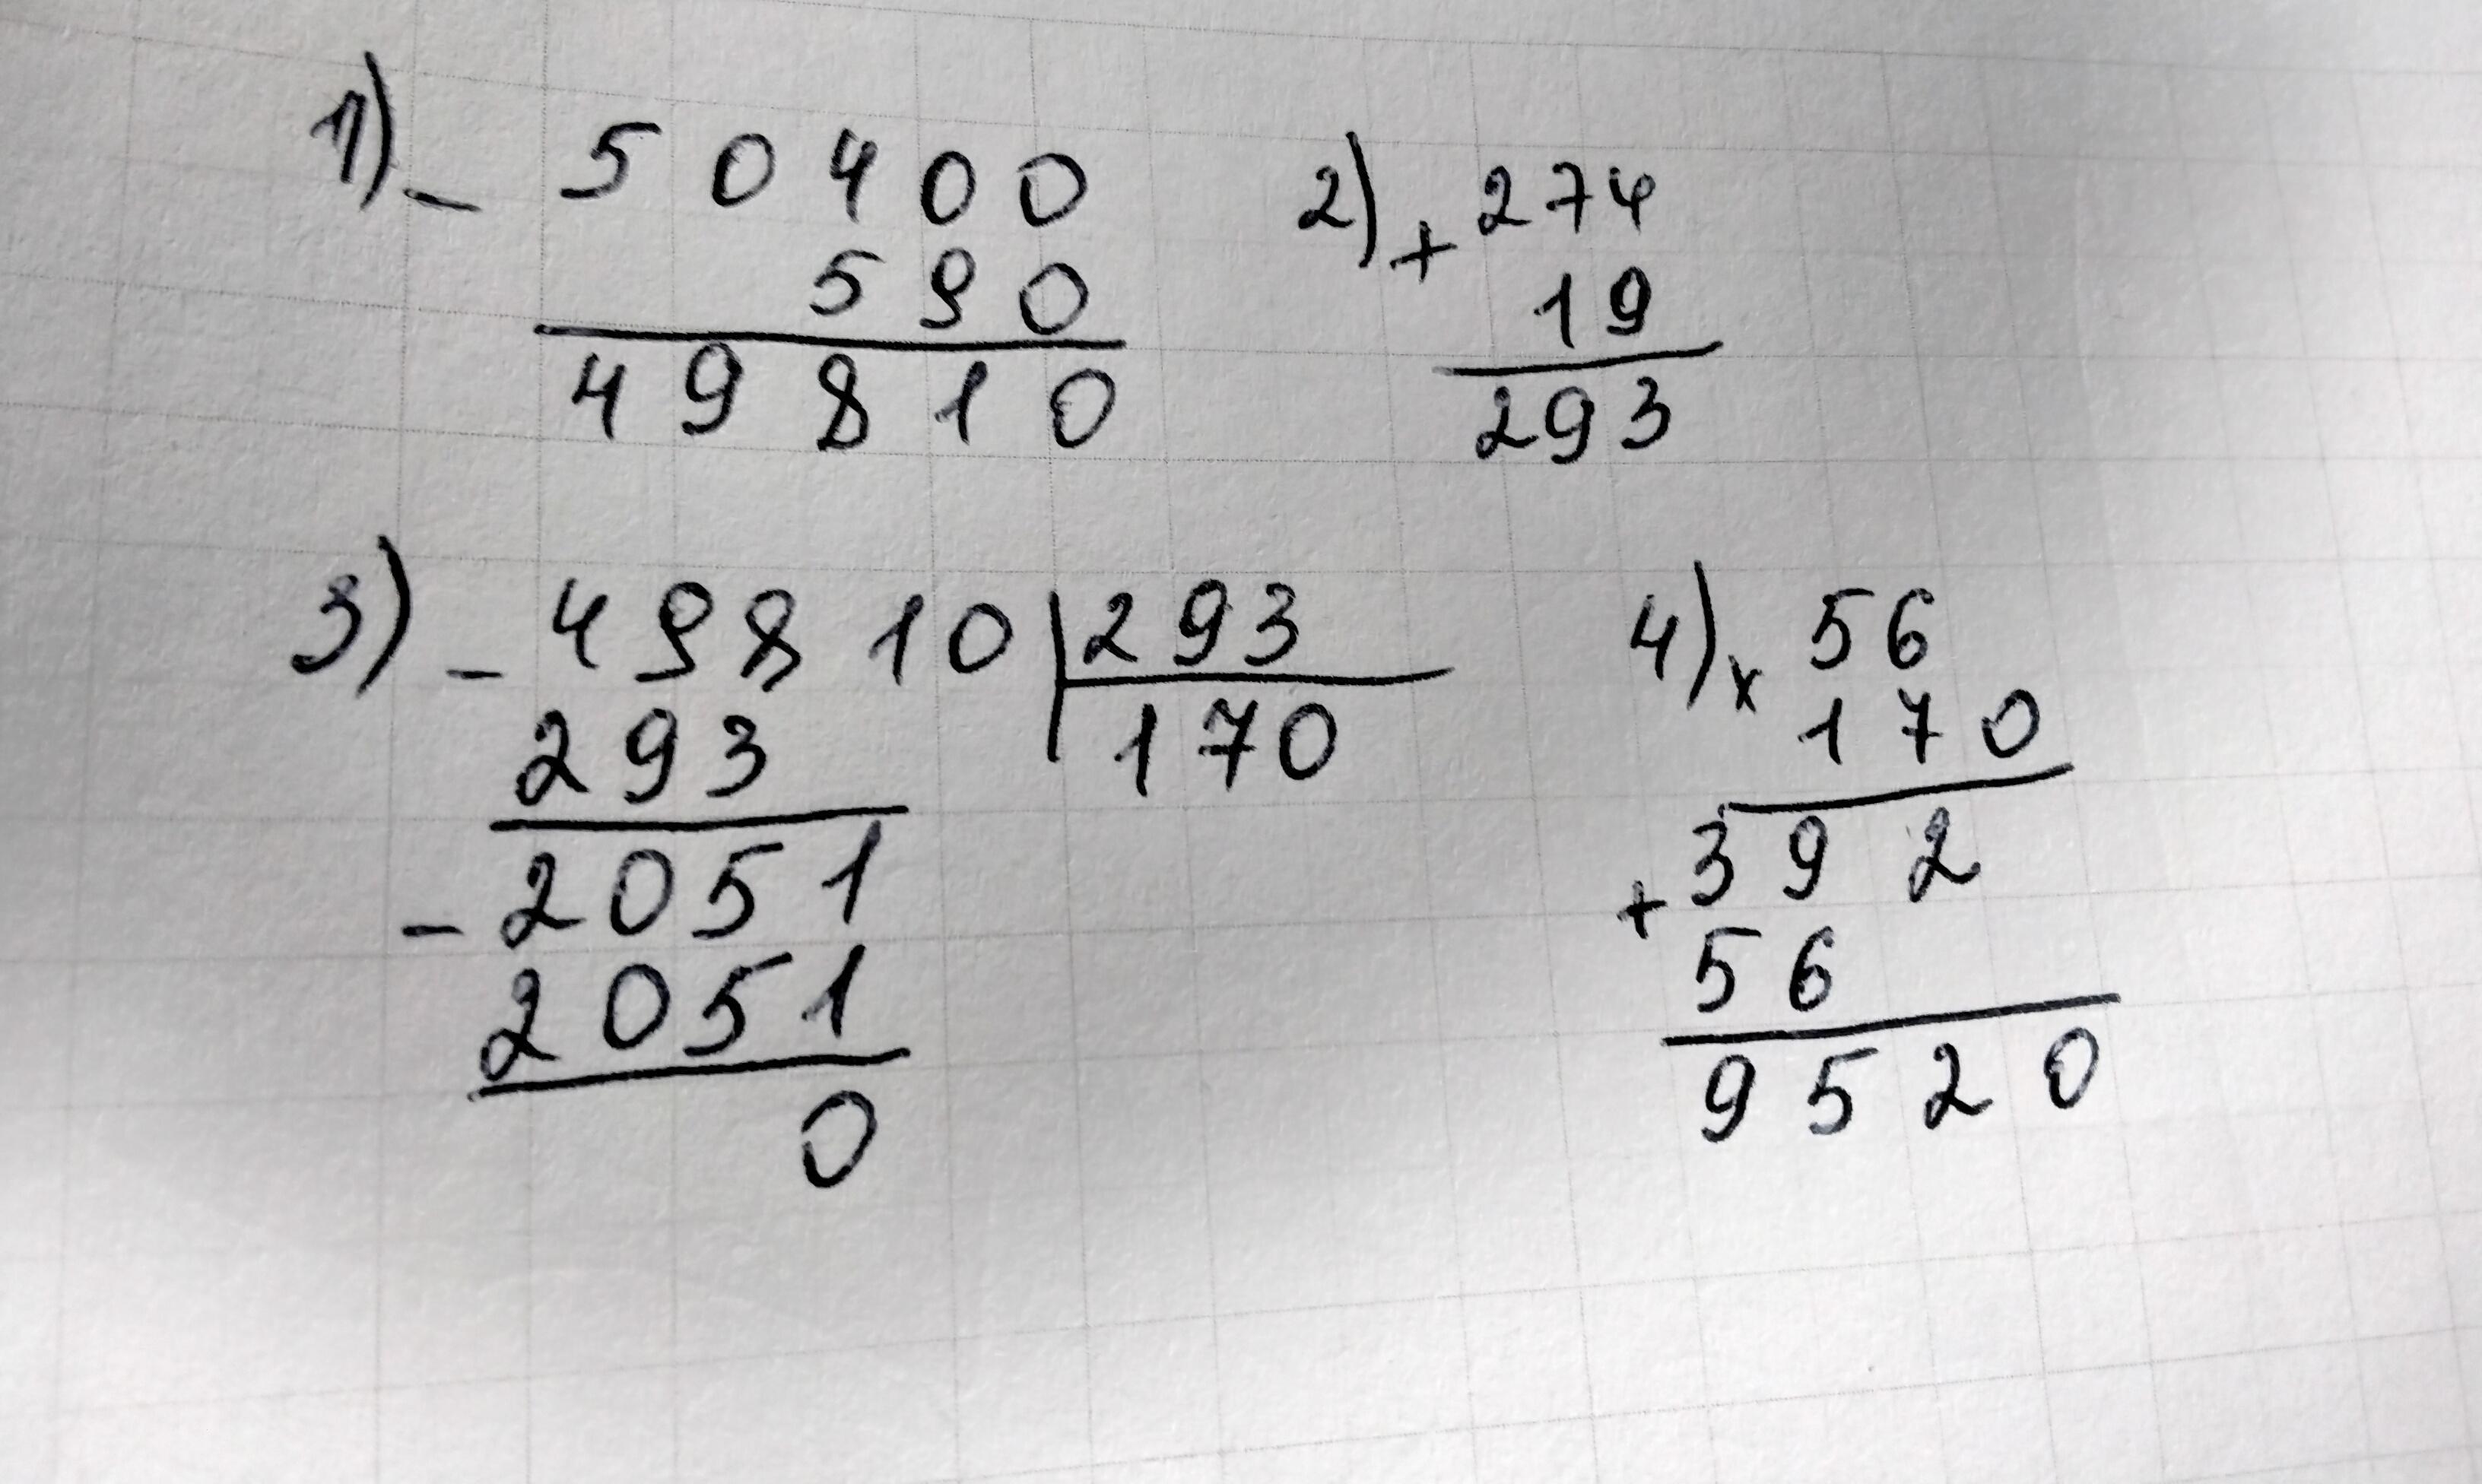 1) - 50400
590
49810
2) + 274
19
293
3) - 49810 | 293
293 170
- 2051
2051
0
4) x 56
170
+ 392
56
9520